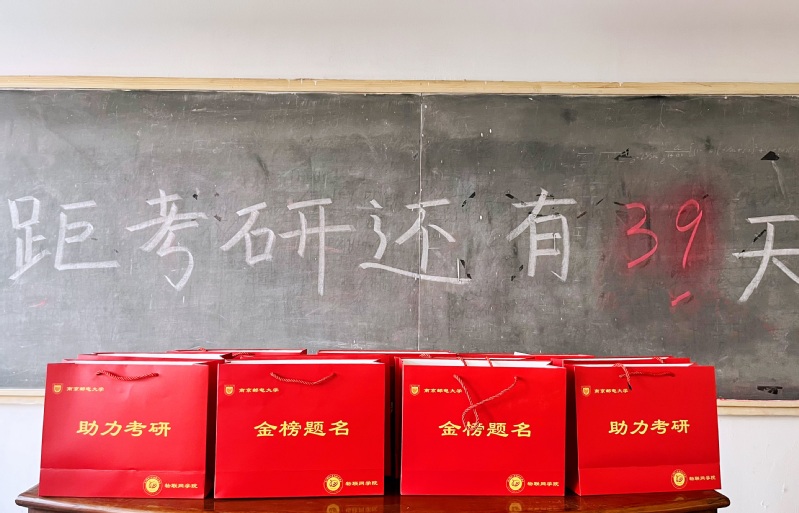 距考研还有39天
南京邮电大学
助力考研
物联网学院
南京邮电大学
金榜题名
南京邮电大学
金榜题名
物联网学院
南京邮电大学
助力考研
物联网学院